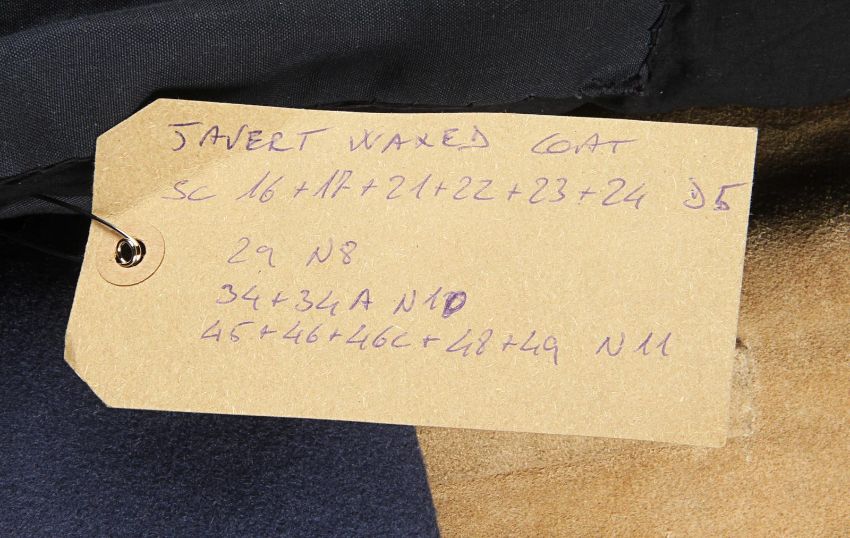 JAVERT WAXED COAT
SC 16+17+21+22+23+24 D5
29 N8
34+34A N10
45+46+46C+48+49 N11